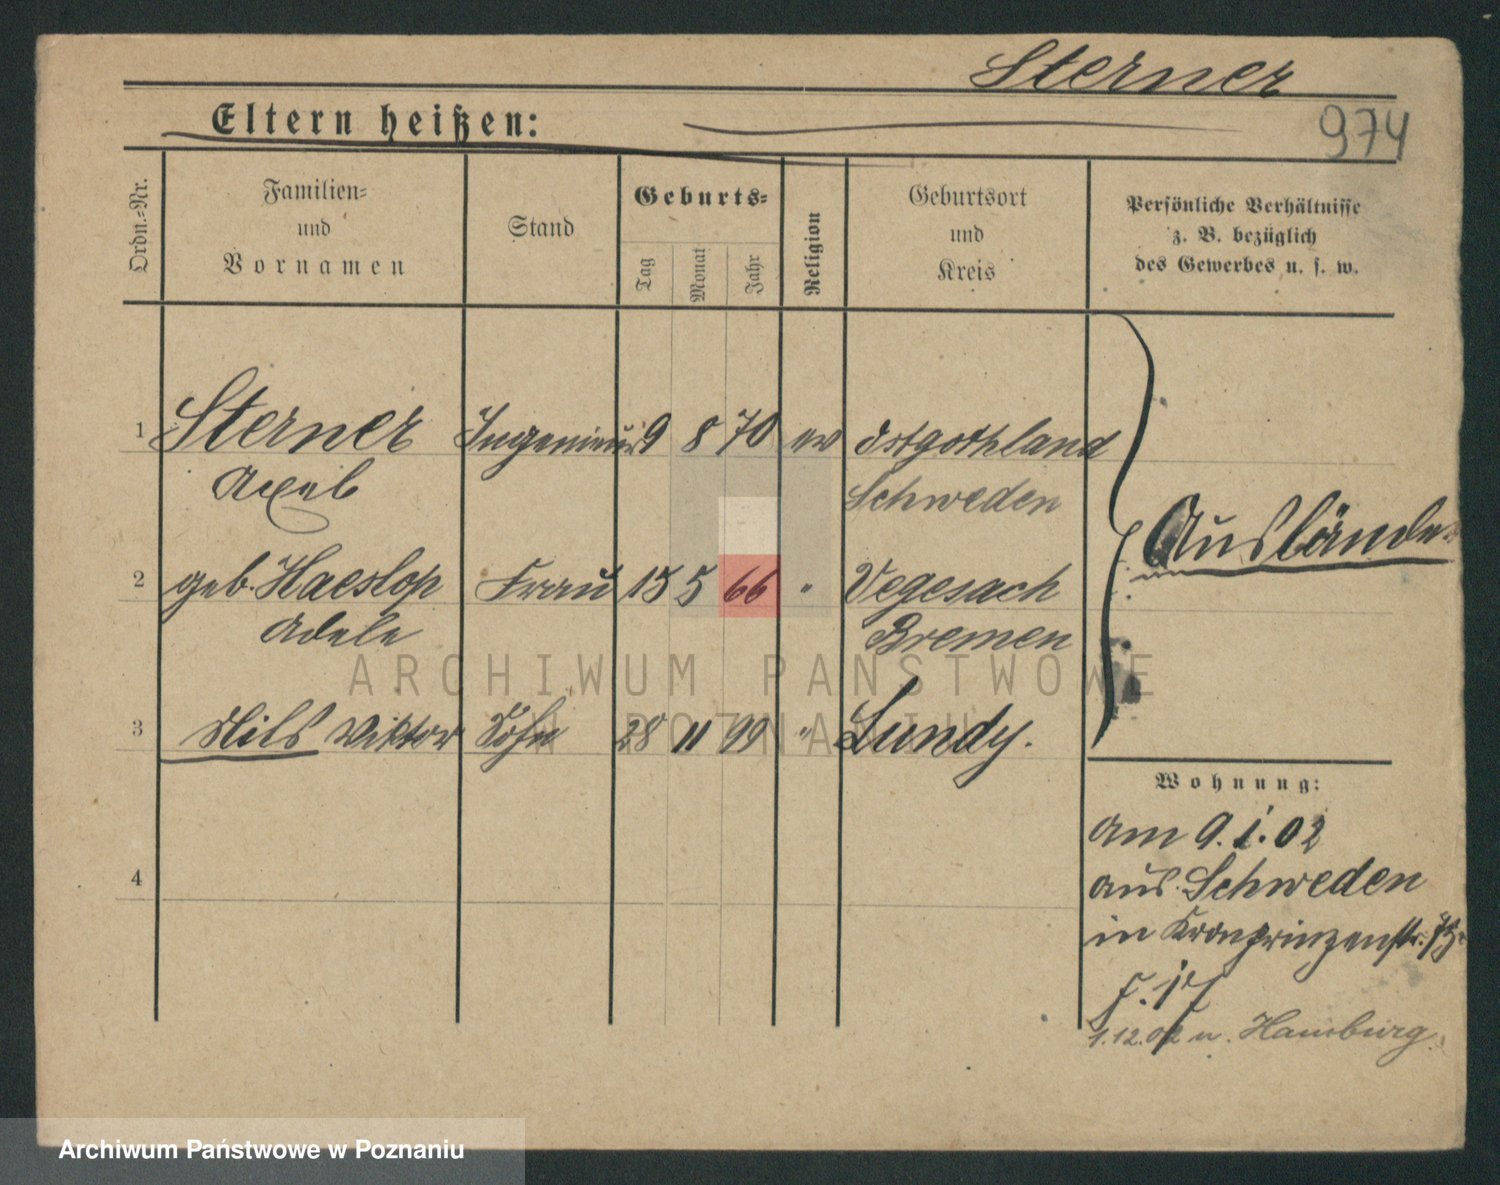 Sterner
Eltern heißen:
974
Ordn.-Nr.
Familien-
und
Vornamen
Stand
Geburts-
Tag
Monat
Jahr
Religion
Geburtsort
und
Kreis
Persönliche Verhältnisse
z. B. bezüglich
des Gewerbes u. s. w.
1 Sterner Ingenieur 9 8 70 ev Ostgothland
Axel Schweden
Ausländer
2 geb. Haeslop Frau 15 5 66 " Vegesack
Adele Bremen
ARCHIWUM PAŃSTWOWE
W POZNANIU
3 Nils Viktor Sohn 28 11 99 " Lundy.
Wohnung:
am 9.1.02
4
aus Schweden
in Kronprinzenstr.
1.12.02 n. Hamburg.
Archiwum Państwowe w Poznaniu